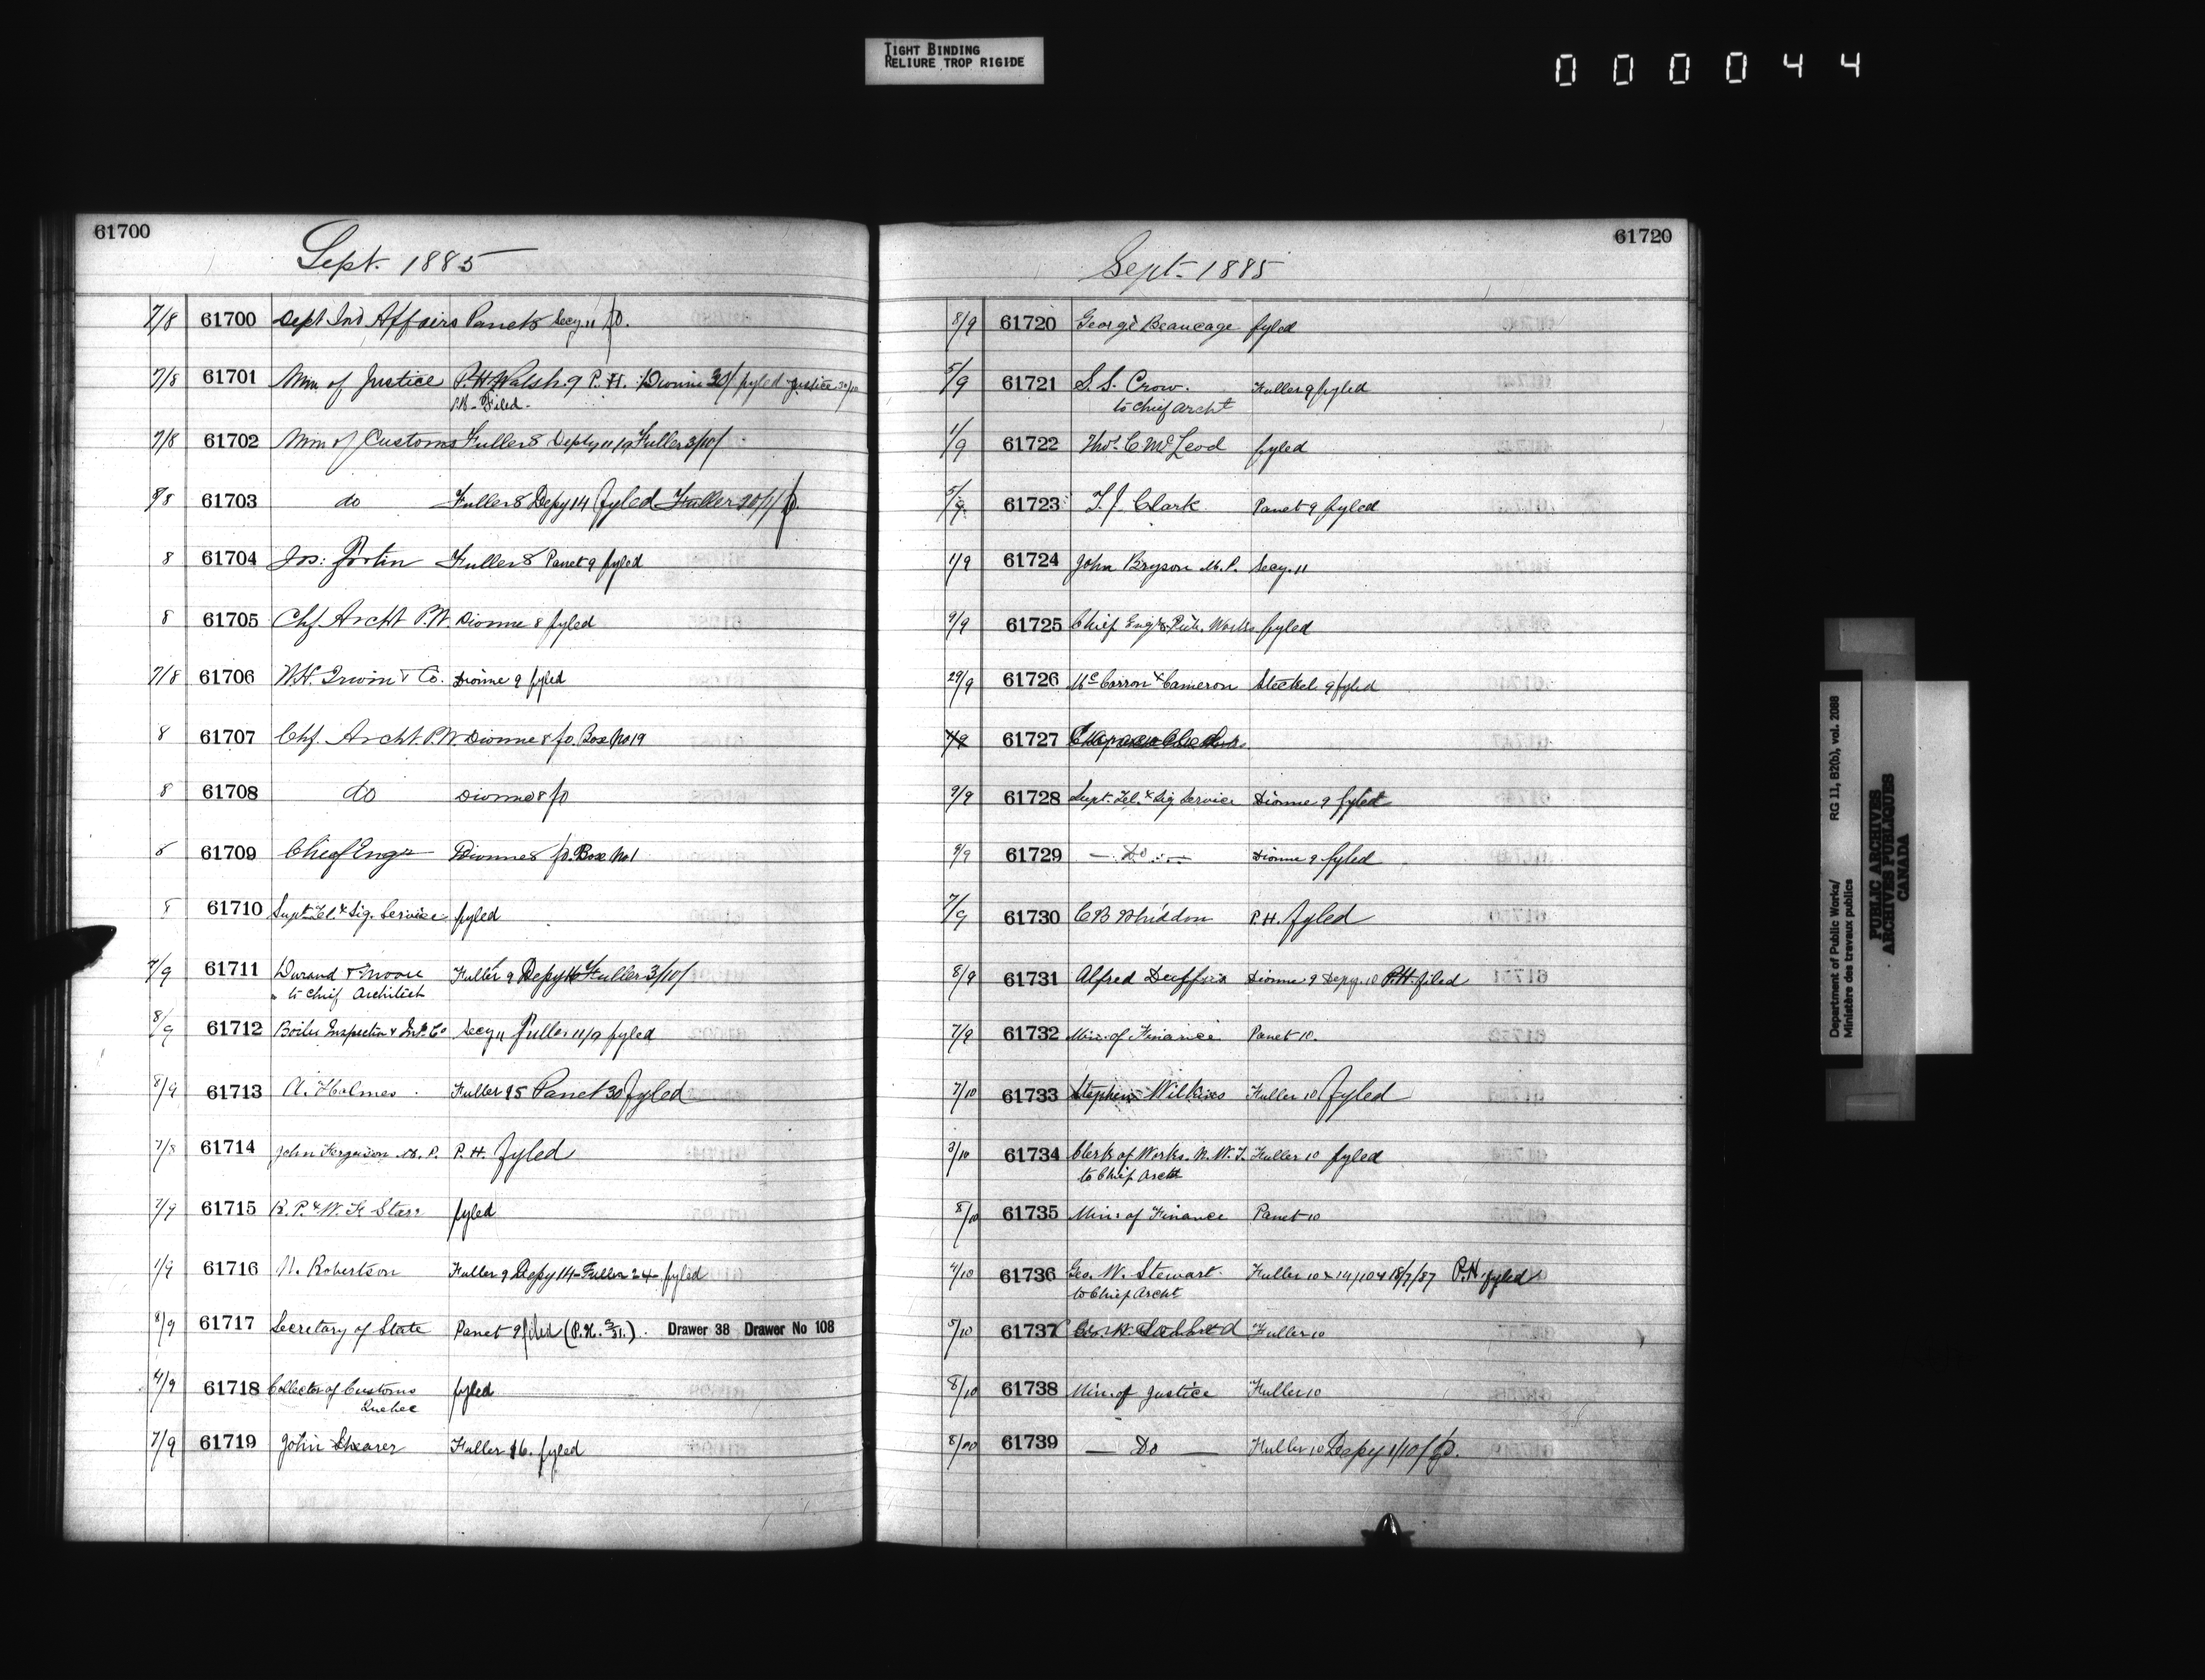 TIGHT BINDING
RELIURE TROP RIGIDE
000044
61700
Sept. 1885
7/8 61700 Dept Ind Affairs Panet 8 Secy. 11 fd.
7/8 61701 Min of Justice P.H. Walsh 9 P.H. Dionne 30/ fyled Justice
P.H. Filed.
7/8 61702 Min of Customs Fuller 8 Depty 11/9 Fuller 3/10/
8/8 61703 do Fuller 8 Depy 14 fyled Fuller 20/1/ fd.
8 61704 Jos: Fortin Fuller 8 Panet 9 fyled
8 61705 Chf. Archt P.W. Dionne 8 fyled
7/8 61706 W.H. Irwin & Co. Dionne 9 fyled
8 61707 Chf. Archt. P.W. Dionne 8 fd. Box No 19
8 61708 do Dionne 8 fd
8 61709 Chief Engr Dionne 8 fd. Box No 1
8 61710 Supt Tel. & Sig. Service fyled
7/9 61711 Durand & Moore Fuller 9 Depy 16 Fuller 3/10/
to Chief Architect
8/9 61712 Boiler Inspection & Ins. Co Secy 11 Fuller 11/9 fyled
8/9 61713 A. Holmes. Fuller 25 Panet 30 fyled
7/8 61714 John Ferguson M.P. P.H. fyled
7/9 61715 R.P. & W.F. Starr fyled
1/9 61716 N. Robertson Fuller 9 Depy 14 Fuller 24 fyled
8/9 61717 Secretary of State Panet 9 filed (P.H. ). Drawer 38 Drawer No 108
4/9 61718 Collector of Customs fyled
Quebec
7/9 61719 John Shearer Fuller 16. fyled
61720
Sept. 1885
8/9 61720 George Beaucage fyled
5/9 61721 S.S. Crow. Fuller 9 fyled
to Chief Archt
1/9 61722 Thos. C. McLeod fyled
5/9 61723 T.J. Clark Panet 9 fyled
1/9 61724 John Bryson M.P. Secy. 11
9/9 61725 Chief Engr. Pub. Works fyled
29/9 61726 McCarron & Cameron Steckel 9 fyled
61727
9/9 61728 Supt. Tel. & Sig Service Dionne 9 fyled
9/9 61729 — Do — Dionne 9 fyled
7/9 61730 C B Whiddon P.H. fyled
8/9 61731 Alfred Dionne 9 Depy. 10 P.H. filed
7/9 61732 Min: of Finance Panet 10.
7/10 61733 Stephen Wilkins Fuller 10 fyled
3/10 61734 Clerk of Works. N.W.T. Fuller 10 fyled
to Chief Archt
8/10 61735 Min: of Finance Panet 10
4/10 61736 Geo. W. Stewart. Fuller 10 & 14/10 & 18/7/87 P.H. fyled
to Chief Archt
5/10 61737 Fuller 10
8/10 61738 Min. of Justice Fuller 10
8/10 61739 — Do — Fuller 10 Depy 1/10/ fd.
Department of Public Works/ RG 11, B2(b), vol. 2088
Ministère des travaux publics
PUBLIC ARCHIVES
ARCHIVES PUBLIQUES
CANADA